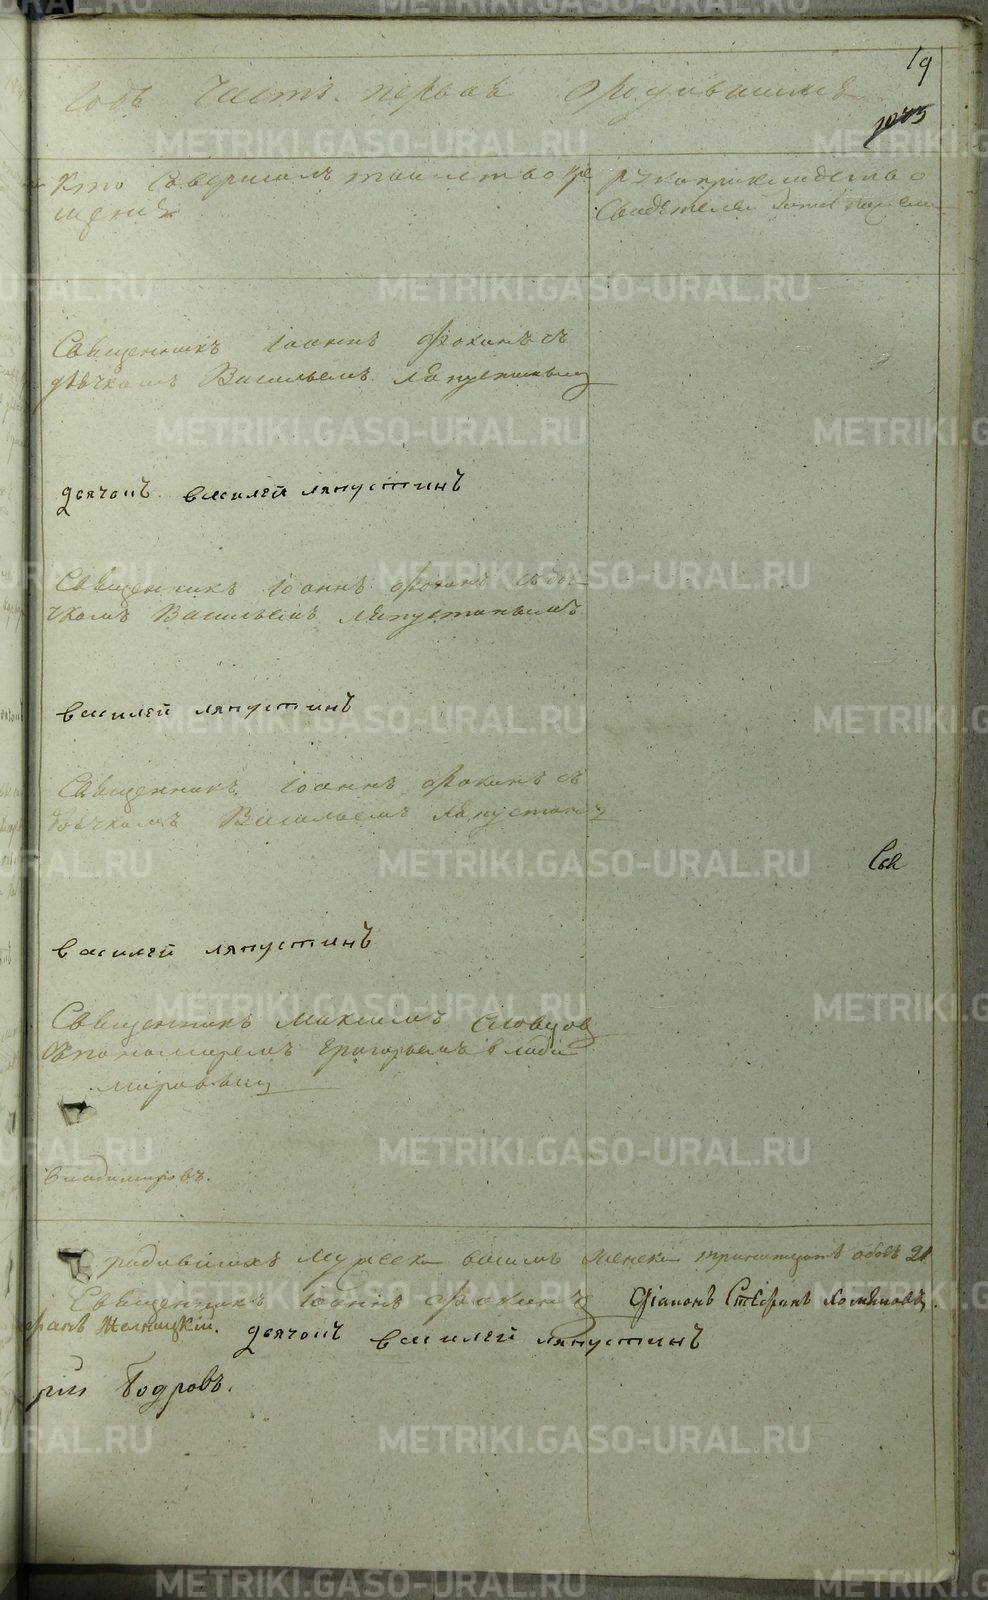 19
Годъ часть первая о родившихся
1043
Кто совершалъ таинство кре
щенiя
рукоприкладство
свидетелей
Священникъ Iоаннъ Фокинъ съ
дьячкомъ Васильемъ Ляпустинымъ
дьячокъ василей ляпустинъ
Священникъ Iоаннъ Фокинъ съ дья
чкомъ Васильемъ Ляпустинымъ
василей ляпустинъ
Священникъ Iоаннъ Фокинъ съ
дьячкомъ Васильемъ Ляпустинымъ
Свя
василей ляпустинъ
Священникъ Максимъ Словцов
пономаремъ Григорьемъ Влади
мировым
Владимировъ.
родившихся мужеска восимь женска тринатцать обоего 21
Священникъ Iоаннъ Фокинъ Дiаконъ Стефанъ Хомяковъ.
дьячокъ василей ляпустинъ
рiй Бодровъ.
METRIKI.GASO-URAL.RU